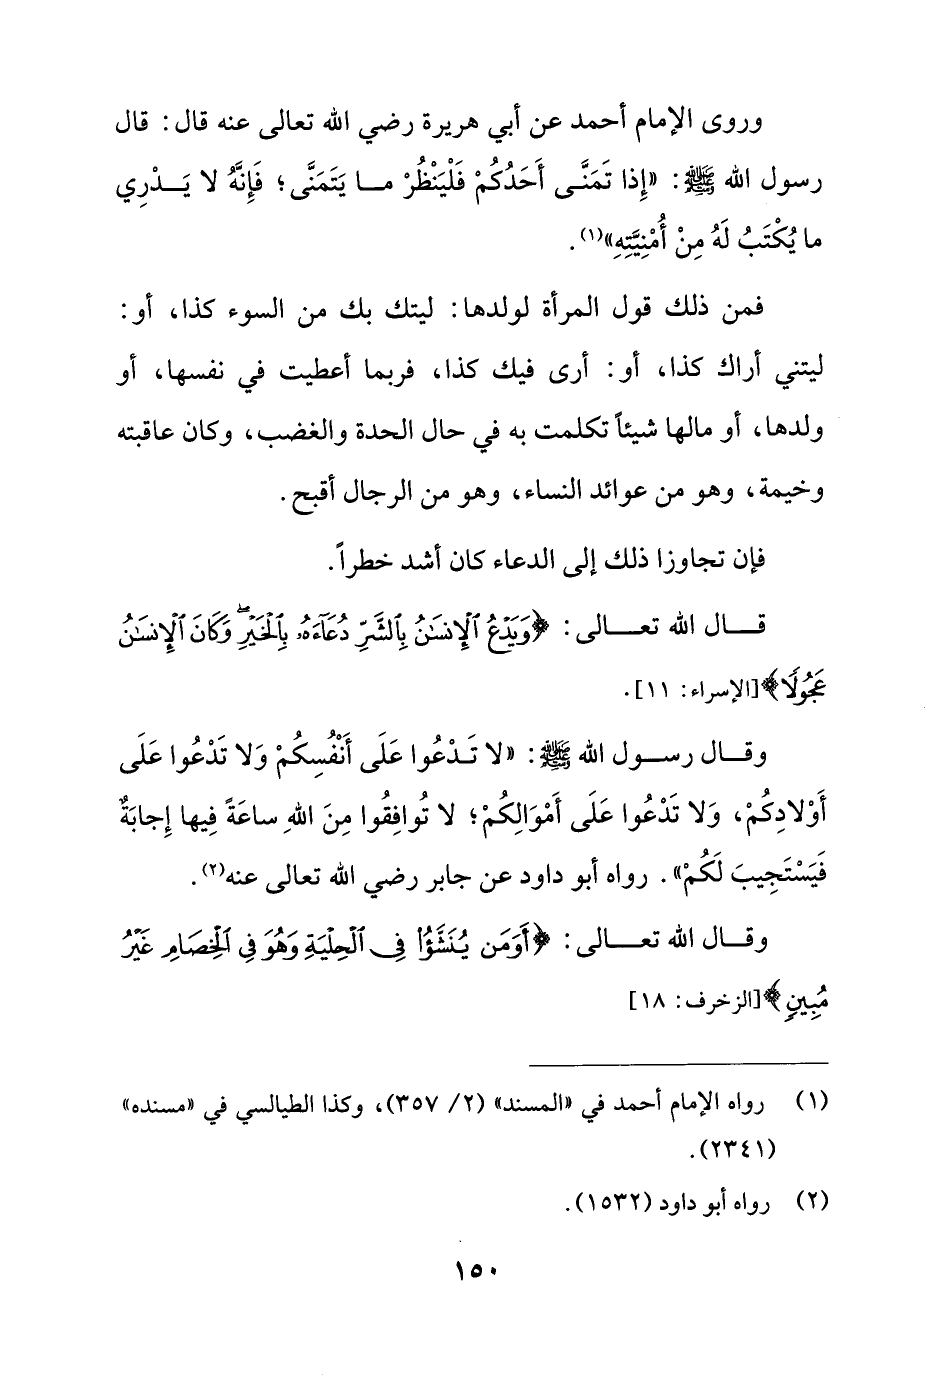 وروى الإمام أحمد عن أبي هريرة رضي الله تعالى عنه قال: قال
رسول الله ﷺ: «إِذا تَمَنَّى أَحَدُكُمْ فَلْيَنْظُرْ ما يَتَمَنَّى؛ فَإِنَّهُ لا يَدْرِي
ما يُكْتَبُ لَهُ مِنْ أُمْنِيَّتِهِ»(١).
فمن ذلك قول المرأة لولدها: ليتك بك من السوء كذا، أو:
ليتني أراك كذا، أو: أرى فيك كذا، فربما أعطيت في نفسها، أو
ولدها، أو مالها شيئاً تكلمت به في حال الحدة والغضب، وكان عاقبته
وخيمة، وهو من عوائد النساء، وهو من الرجال أقبح.
فإن تجاوزا ذلك إلى الدعاء كان أشد خطراً.
قال الله تعالى: ﴿وَيَدْعُ ٱلْإِنسَٰنُ بِٱلشَّرِّ دُعَآءَهُۥ بِٱلْخَيْرِ ۖ وَكَانَ ٱلْإِنسَٰنُ
عَجُولًا﴾[الإسراء: ١١].
وقال رسول الله ﷺ: «لا تَدْعُوا عَلَى أَنْفُسِكُمْ وَلا تَدْعُوا عَلَى
أَوْلادِكُمْ، وَلا تَدْعُوا عَلَى أَمْوَالِكُمْ؛ لا تُوافِقُوا مِنَ اللهِ ساعَةً فِيها إِجابَةٌ
فَيَسْتَجِيبَ لَكُمْ». رواه أبو داود عن جابر رضي الله تعالى عنه(٢).
وقال الله تعالى: ﴿أَوَمَن يُنَشَّؤُا۟ فِى ٱلْحِلْيَةِ وَهُوَ فِى ٱلْخِصَامِ غَيْرُ
مُبِينٍ﴾[الزخرف: ١٨]
(١) رواه الإمام أحمد في «المسند» (٢/ ٣٥٧)، وكذا الطيالسي في «مسنده»
(٢٣٤١).
(٢) رواه أبو داود (١٥٣٢).
١٥٠